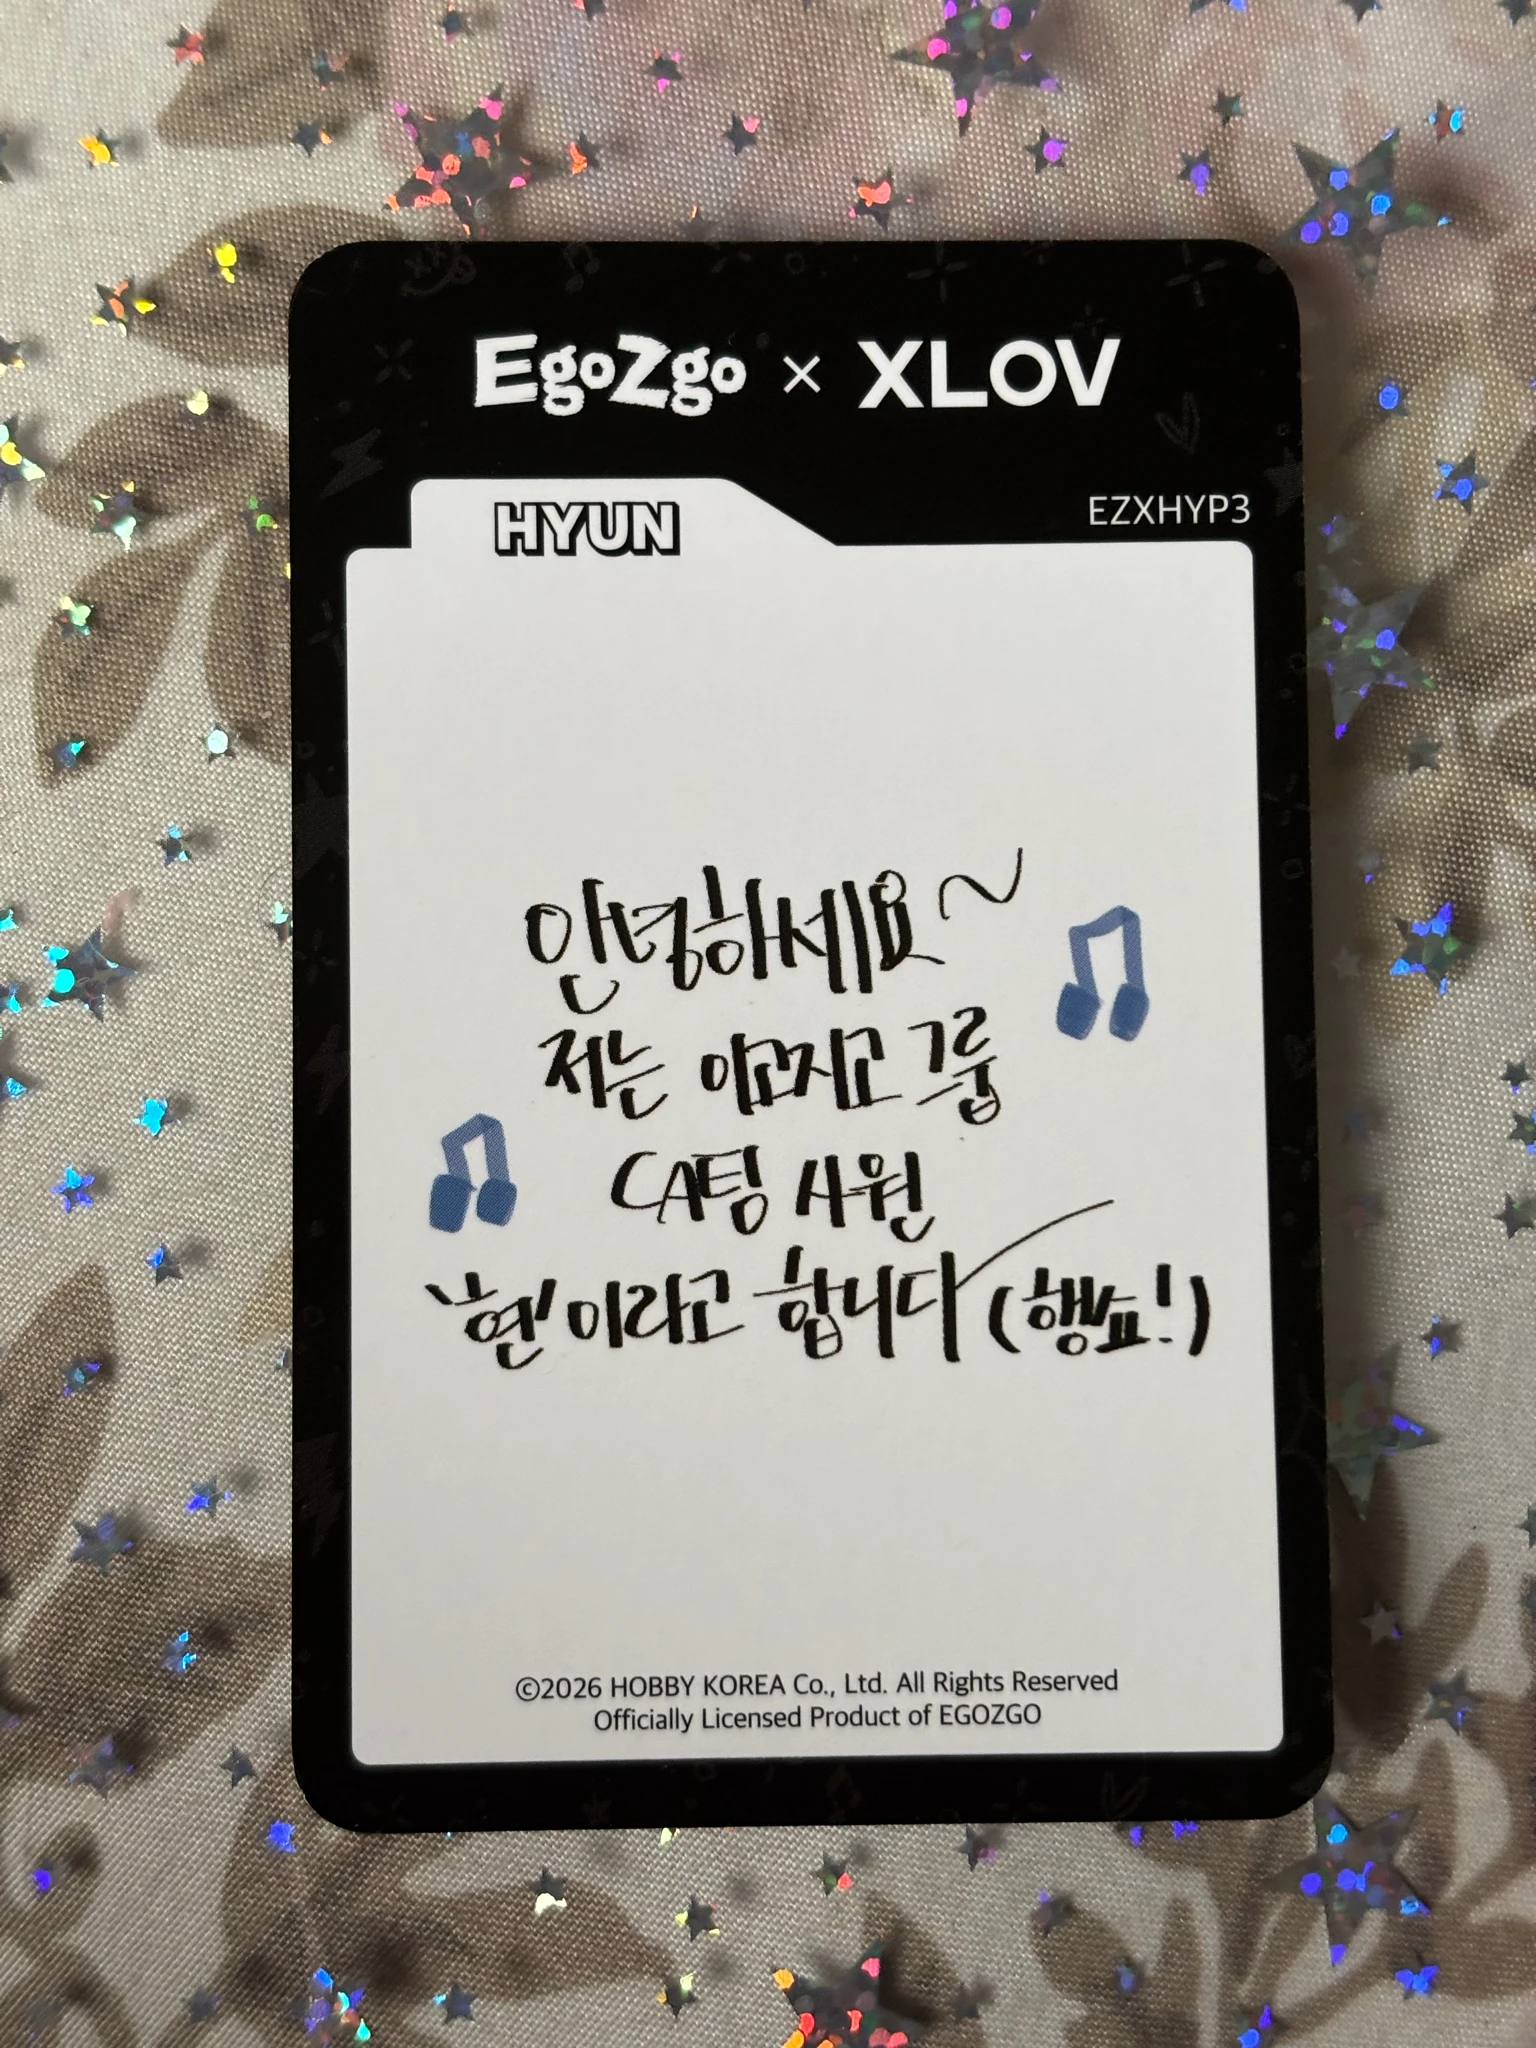 EgoZgo × XLOV
HYUN
EZXHYP3
안녕하세요~
저는 이고지고 그룹
CA팀 사원
'현'이라고 합니다 (행쇼!)
©2026 HOBBY KOREA Co., Ltd. All Rights Reserved
Officially Licensed Product of EGOZGO